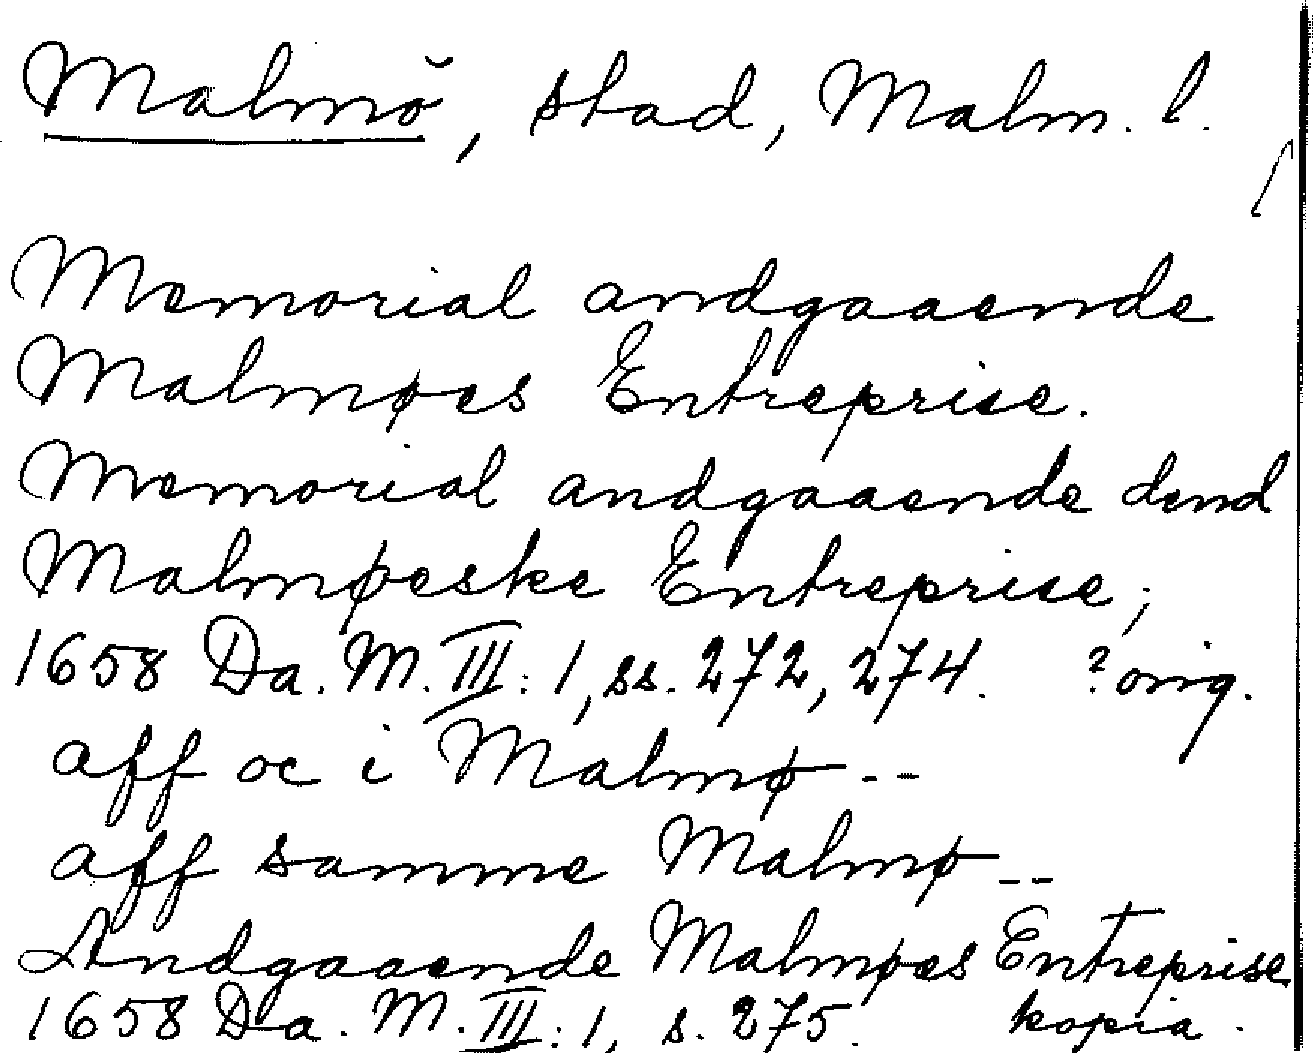 Malmö, stad, Malm. l.
Memorial andgaaende
Malmøes Entreprise.
Memorial andgaaende dend
Malmøeske Entreprise;
1658 Da. M. III: 1, ss. 272, 274. ? orig.
aff oc i Malmø --
aff samme Malmø --
Andgaaende Malmøes Entreprise
1658 Da. M. III: 1, s. 275. kopia.